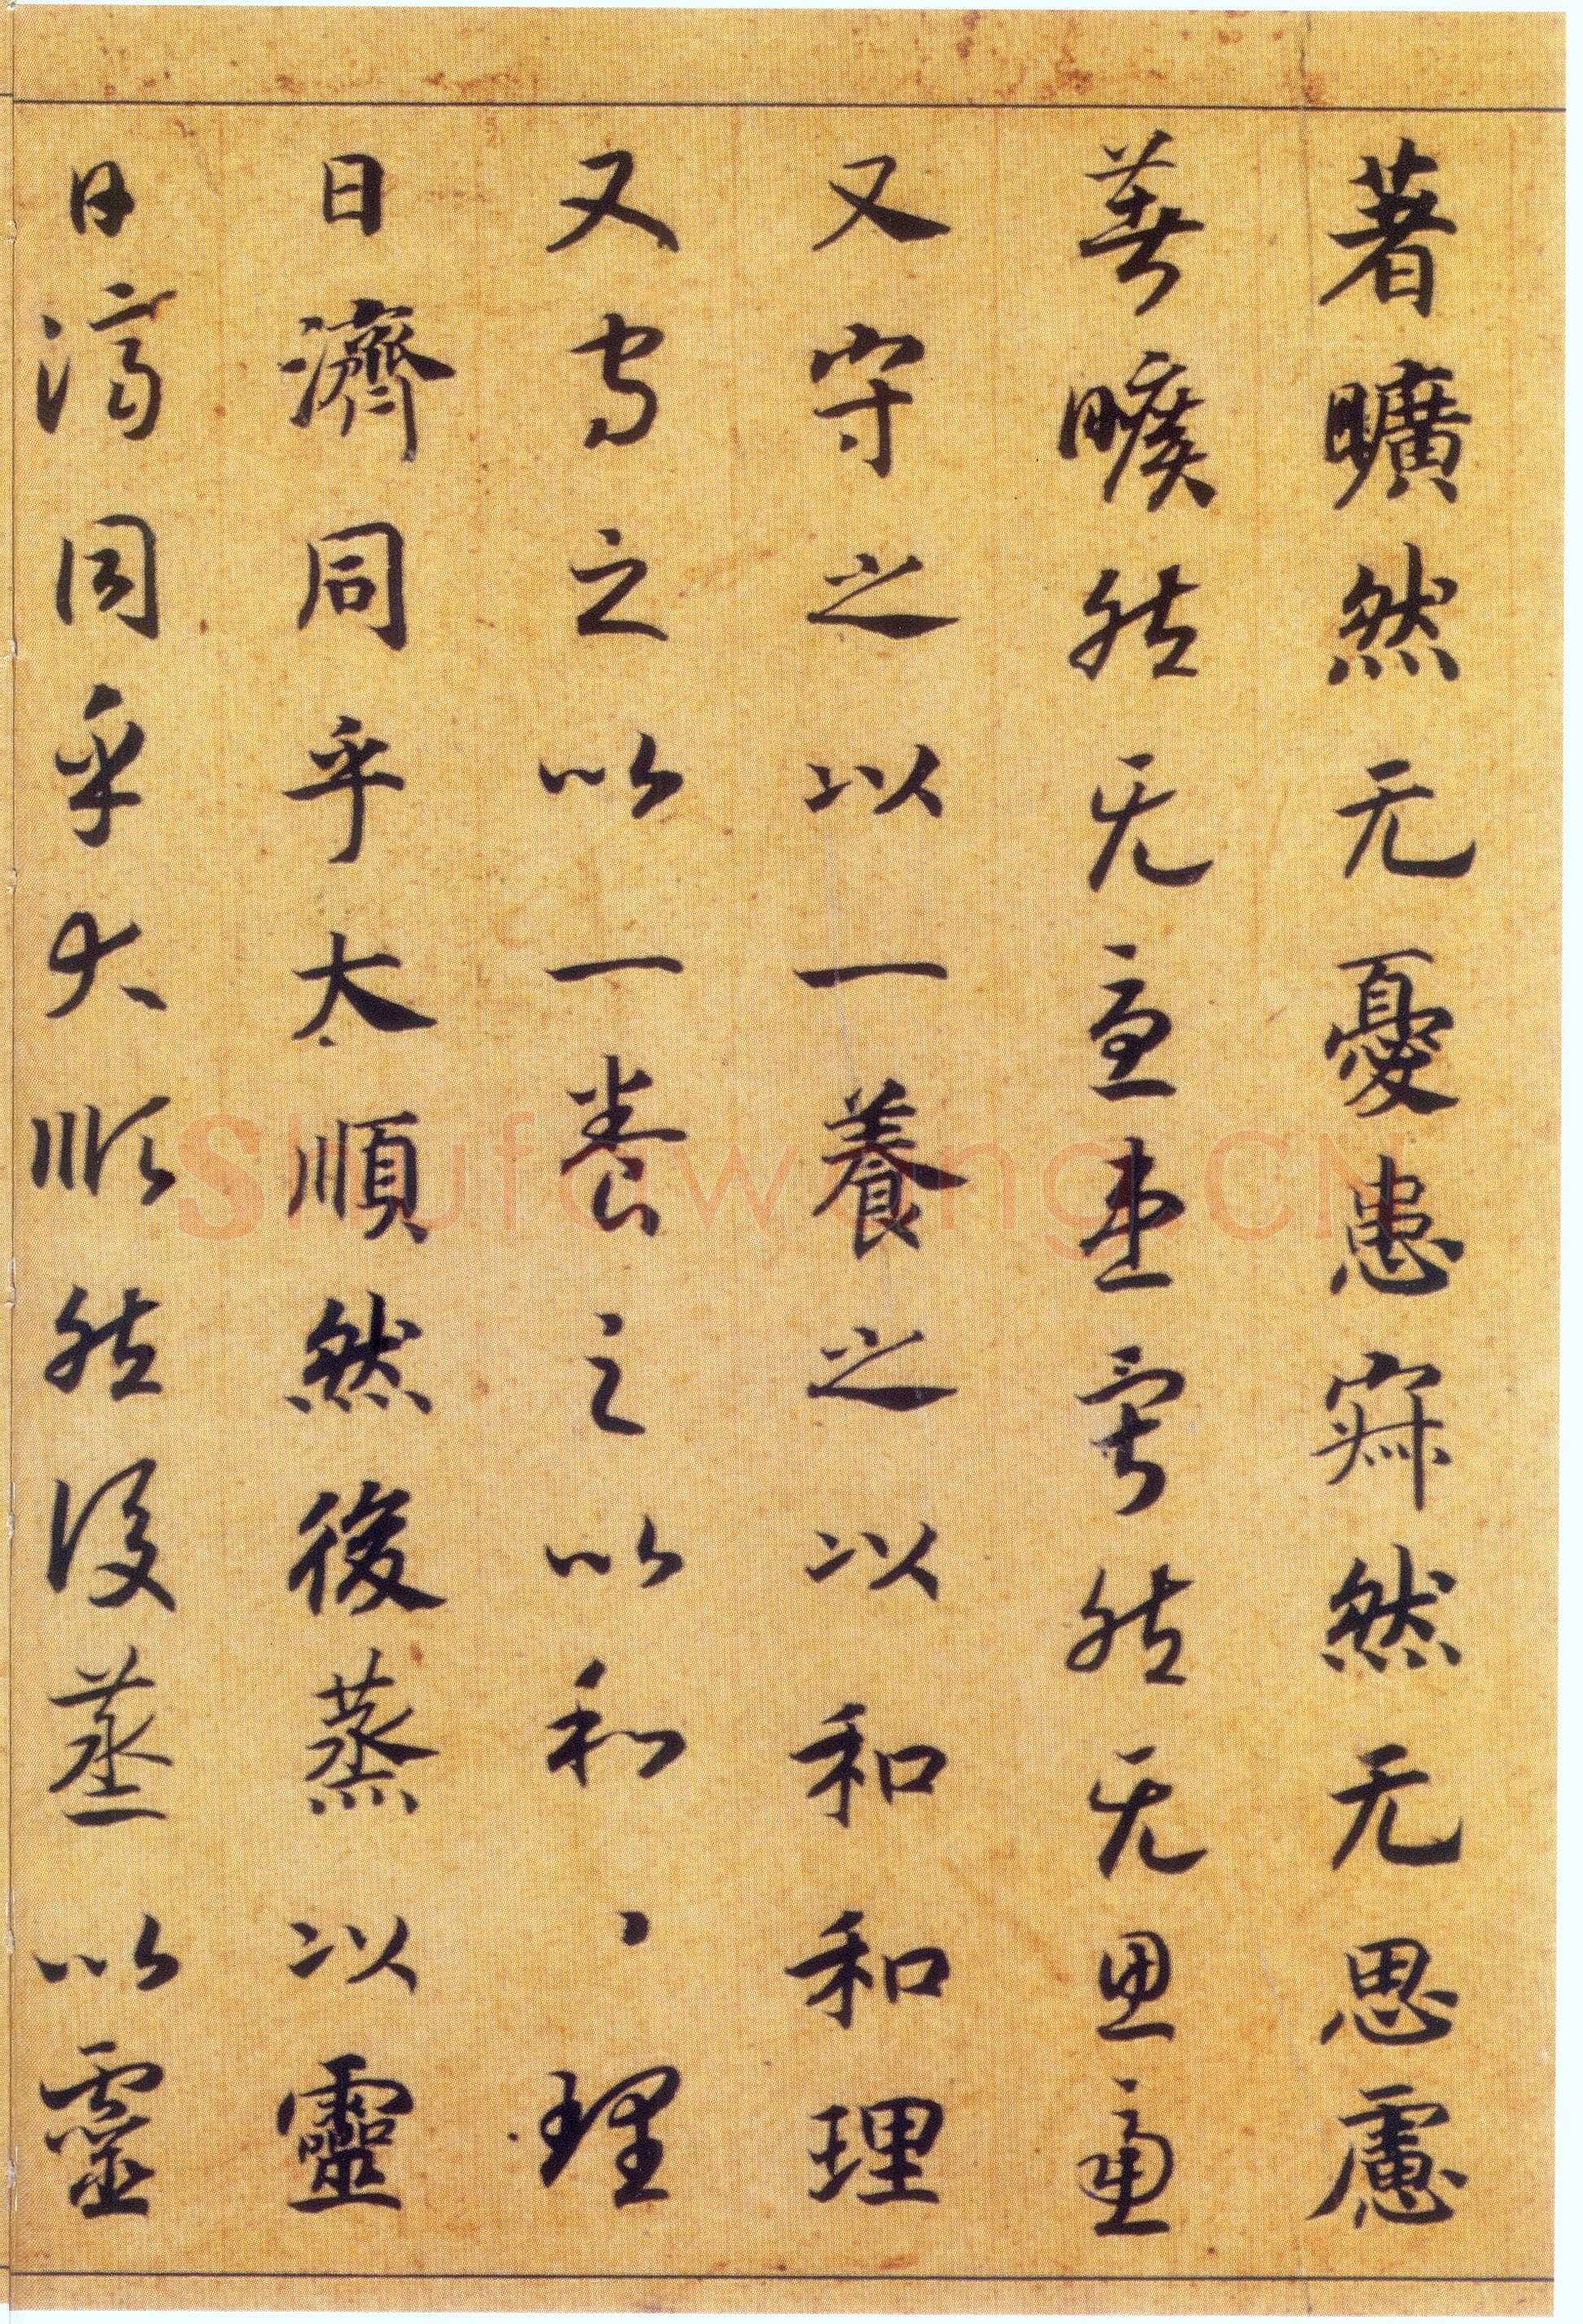 著曠然无憂患寂然无思慮
著曠然无憂患寂然无思慮
又守之以一養之以和和理
又守之以一養之以和、理
日濟同乎太順然後蒸以靈
日濟同乎大順然後蒸以靈
Shufawang.CN